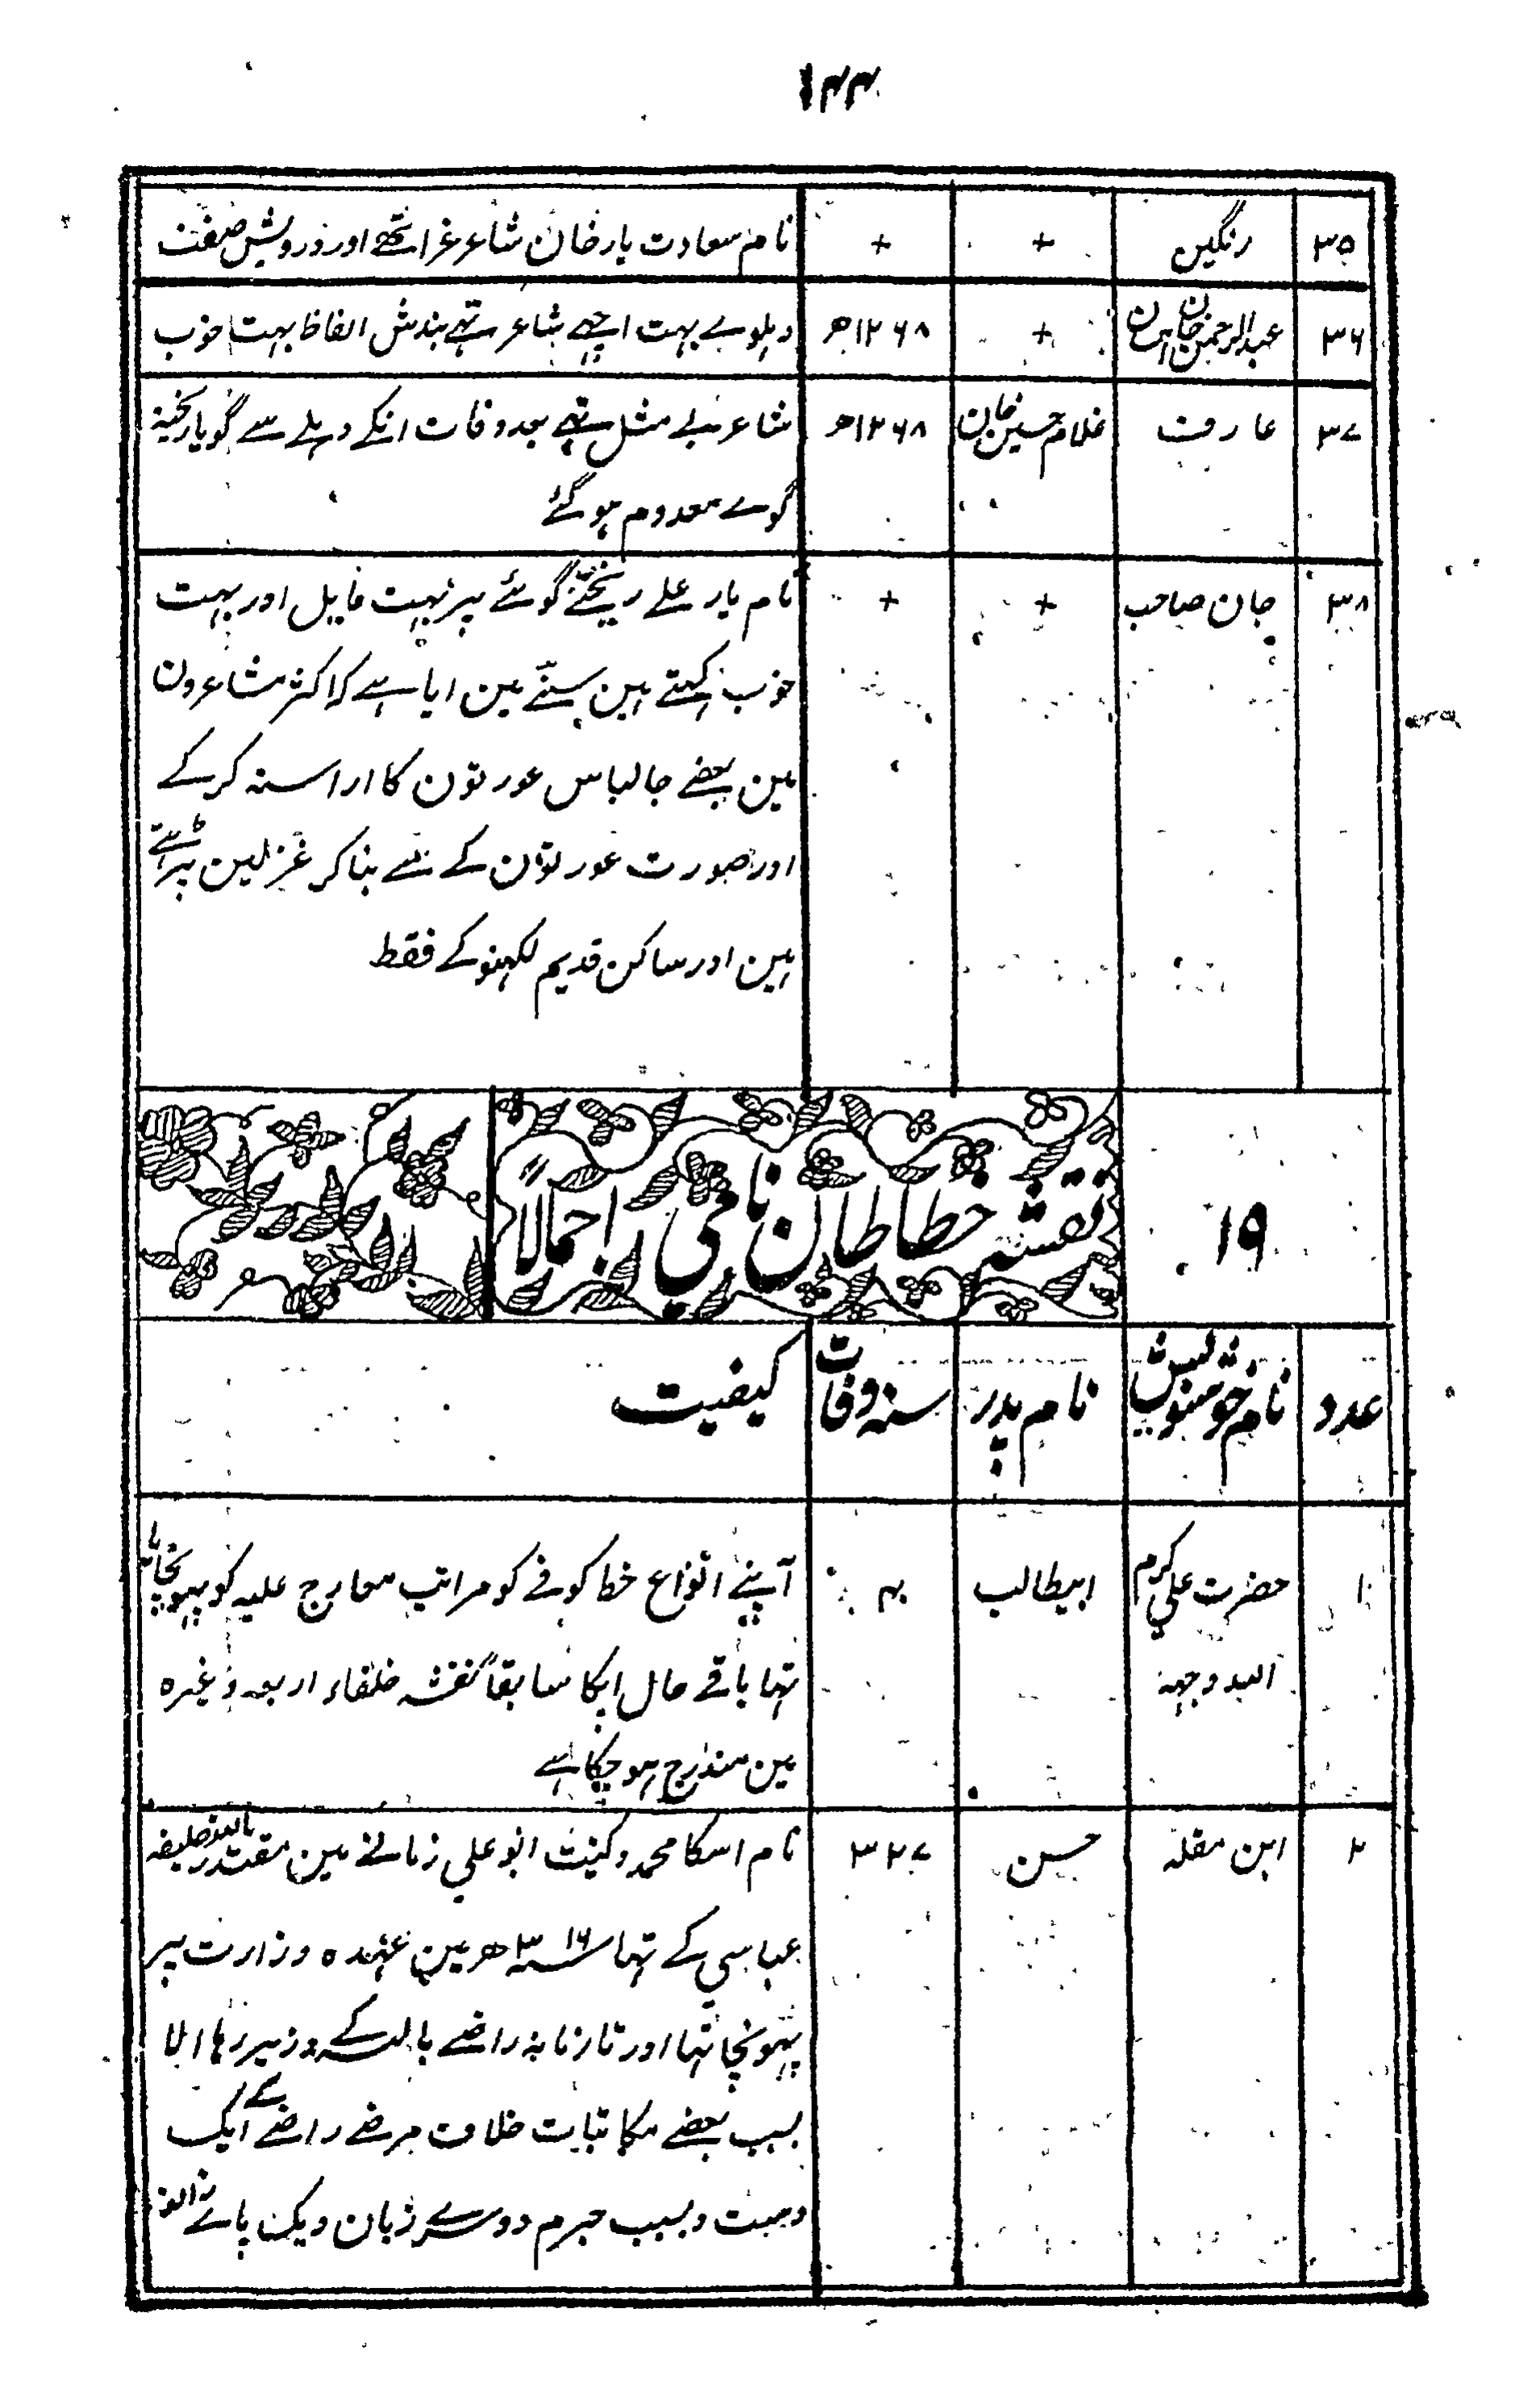 ۱۴۴
۳۵ رنگین + + نام سعادت یار خان شاعر غرا تھے اور درویش صفت
۳۶ عبدالرحمن خان احسان + ۱۲۶۸ھ دہلوے بہت اچھے شاعر تھے بندش الفاظ بہت خوب
۳۷ عارف غلام حسین خان ۱۲۶۸ھ شاعر بے مثل تھے بعد وفات انکے دہلے سے گویا ریختہ
گوے معدوم ہو گئے
۳۸ جان صاحب + + نام یار علے ریختے گوئے پر بہت مایل اور بہت
خوب کہتے ہین سننے مین ایا ہے کہ اکثر مشاعرون
مین بعضے جا لباس عورتون کا اراستہ کر کے
اور صورت عورتون کے سے بنا کر غزلین پڑہتے
ہین اور ساکن قدیم لکہنو کے فقط
۱۹ نقشہ خطاطان نامی اجمالاً
عدد نام خوشنویس نام پدر سنہ وفات کیفیت
۱ حضرت علی کرم ابیطالب ۴۰ آپنے انواع خط کوفے کو مراتب معارج علیہ کو پہونچایا
اللہ وجہہ تہا باقے حال اپکا سابقاً نقشہ خلفاء اربعہ وغیرہ
مین مندرج ہو چکا ہے
۲ ابن مقلہ حسن ۳۲۷ نام اسکا محمد و کنیت ابو علی زمانے مین مقتدر باللہ خلیفہ
عباسی کے تہا سنہ ۳۱۶ھ مین عہدہ وزارت پر
پہونچا تہا اور تا زمانہ راضے باللہ کے وزیر رہا الا
بسبب بعضے مکاتبات خلاف مرضے راضے کے ایک
دست و بسبب جرم دوسرے زبان و یک پائے